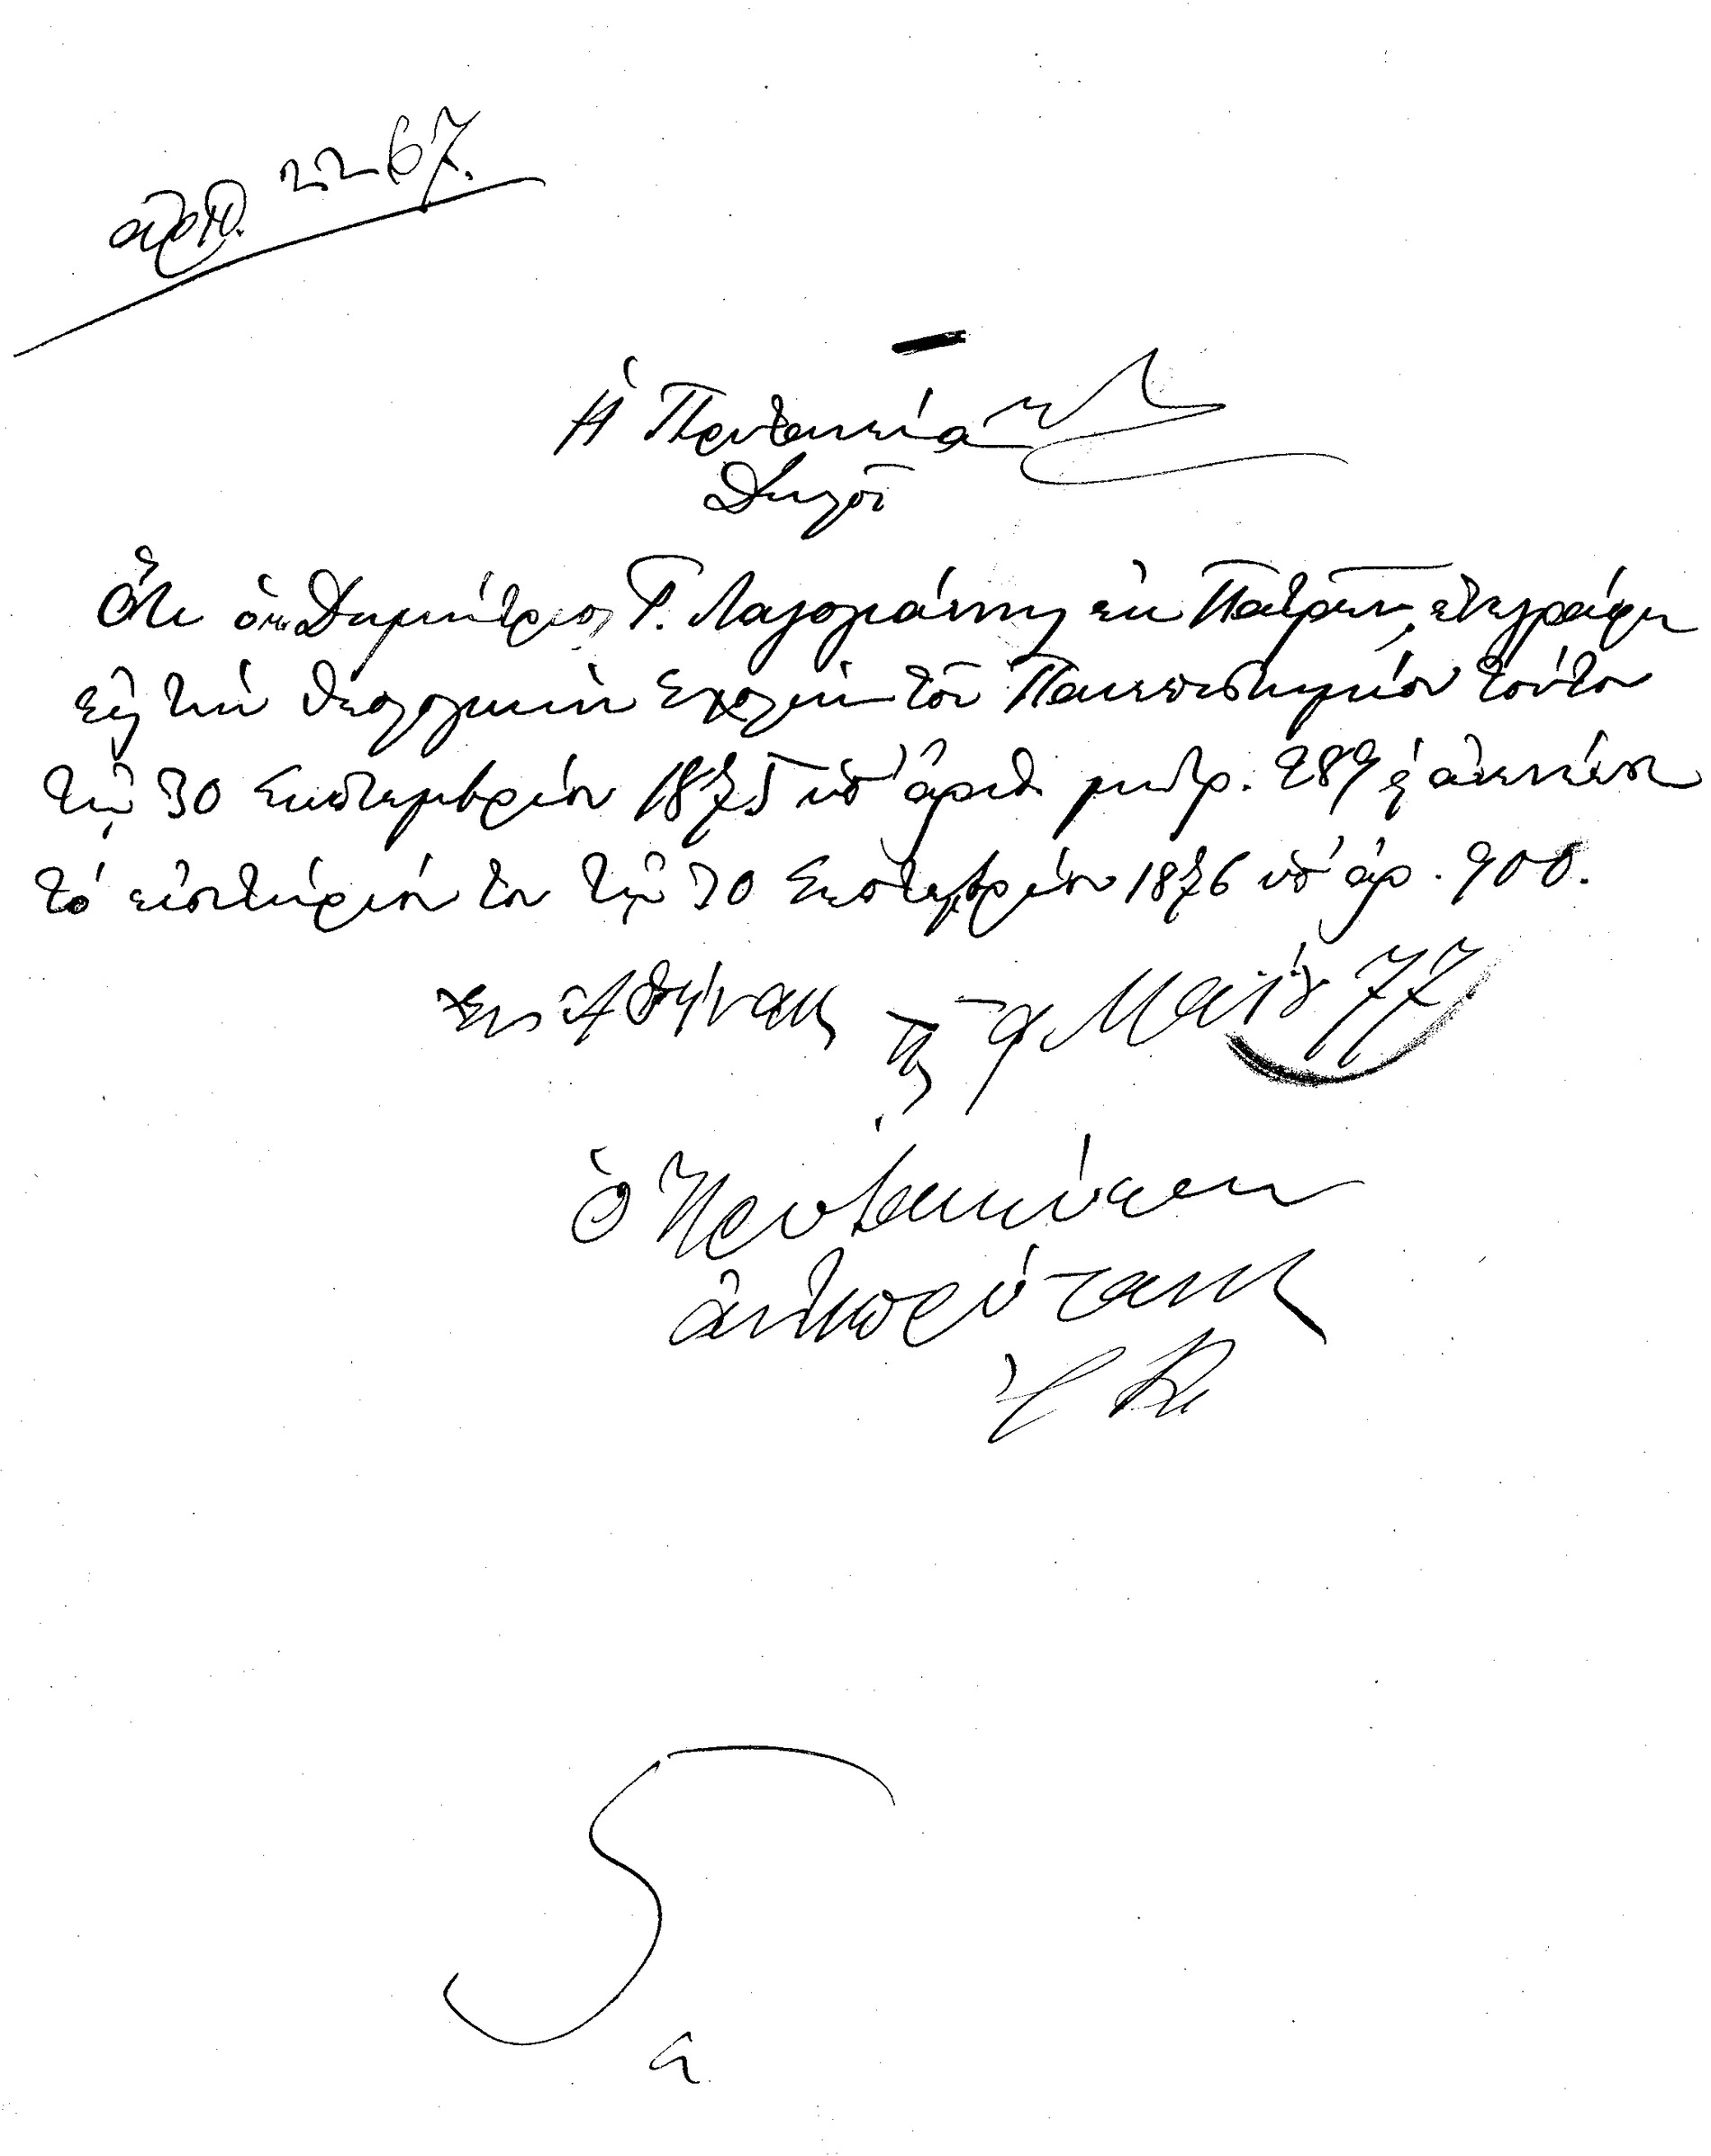 ἀριθ. 2267.
Ἡ Πρυτανεία
Δηλοῖ
Ὅτι ὁ Δημήτριος Γ. Λαγογιάννης ἐκ Πατρῶν, ἐνεγράφη
εἰς τὴν θεολογικὴν Σχολὴν τοῦ Πανεπιστημίου τούτου
τῇ 30 Σεπτεμβρίου 1875 ὑπ' ἀριθ. μητρ. 289 ἀνενέωσε
τὸ εἰσιτήριόν του τῇ 30 Σεπτεμβρίου 1876 ὑπ' ἀρ. 900.
Ἐν Ἀθήναις τῇ 9 Μαΐου 77
ὁ Πρυτανεύων
ἀντιπρύτανις